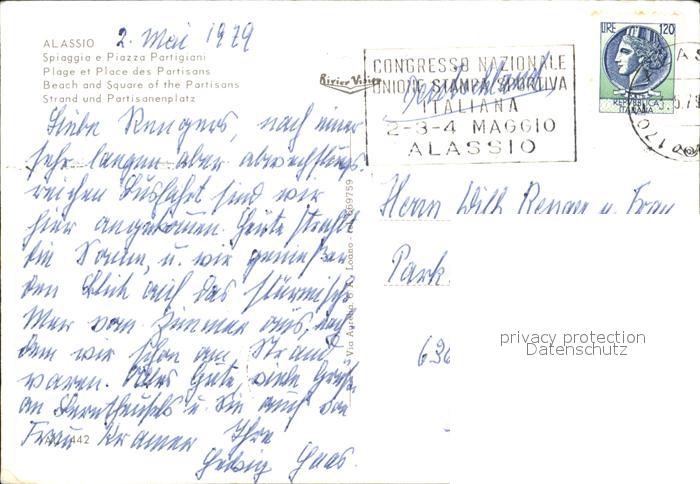 ALASSIO 2. Mai 1979
Spiaggia e Piazza Partigiani
Plage et Place des Partisans
Beach and Square of the Partisans
Strand und Partisanenplatz
Liebe Rengers, nach einer
sehr langen aber abwechslungs-
reichen Busfahrt sind wir
hier angekommen. Heute strahlt
die Sonne, u. wir genießen
den Blick auf das stürmische
Meer vom Zimmer aus, nach
dem wir schon am Strand
waren. Alles Gute, viele Grüße
an u. Sie auch von
Frau Kramer Ihre
Hedwig Haas.
442
Rivier Vision
Via Aurelia, Loano
CONGRESSO NAZIONALE
UNIONE STAMPA SPORTIVA
ITALIANA
2-3-4 MAGGIO
ALASSIO
LIRE 120
REPUBBLICA
ITALIANA
Herrn Willi u. Frau
Park
636
privacy protection
Datenschutz